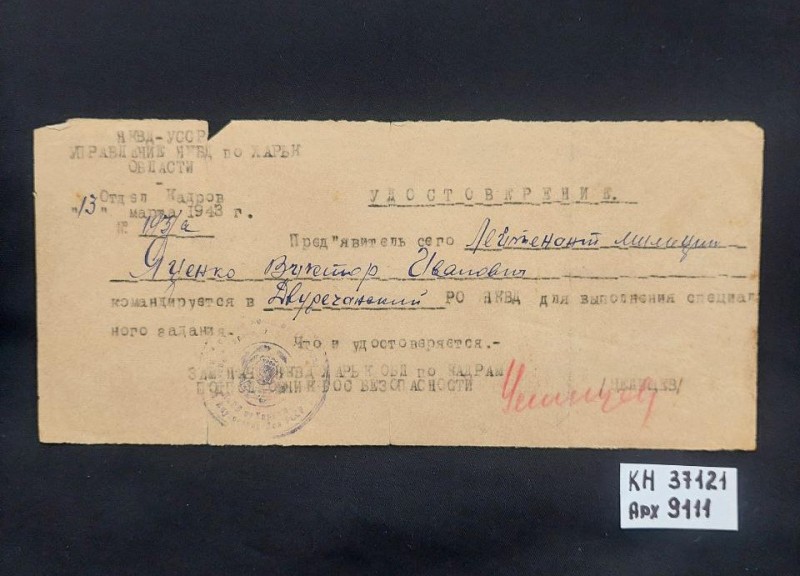 НКВД-УССР
УПРАВЛЕНИЕ НКВД по ХАРЬК
ОБЛАСТИ
Отдел Кадров
"13" марта 1943 г.
№ 193/а
УДОСТОВЕРЕНИЕ.
Пред"явитель сего Лейтенант милиции
Яценко Виктор Иванович
командируется в Двуречанский РО НКВД для выполнения специаль
ного задания.
Что и удостоверяется.-
ЗАМ НКВД ХАРЬК ОБЛ по КАДРАМ
ПОДПОЛКОВНИК ГОС БЕЗОПАСНОСТИ /ЧЕЛИЩЕВ/
КН 37121
Арх 9111